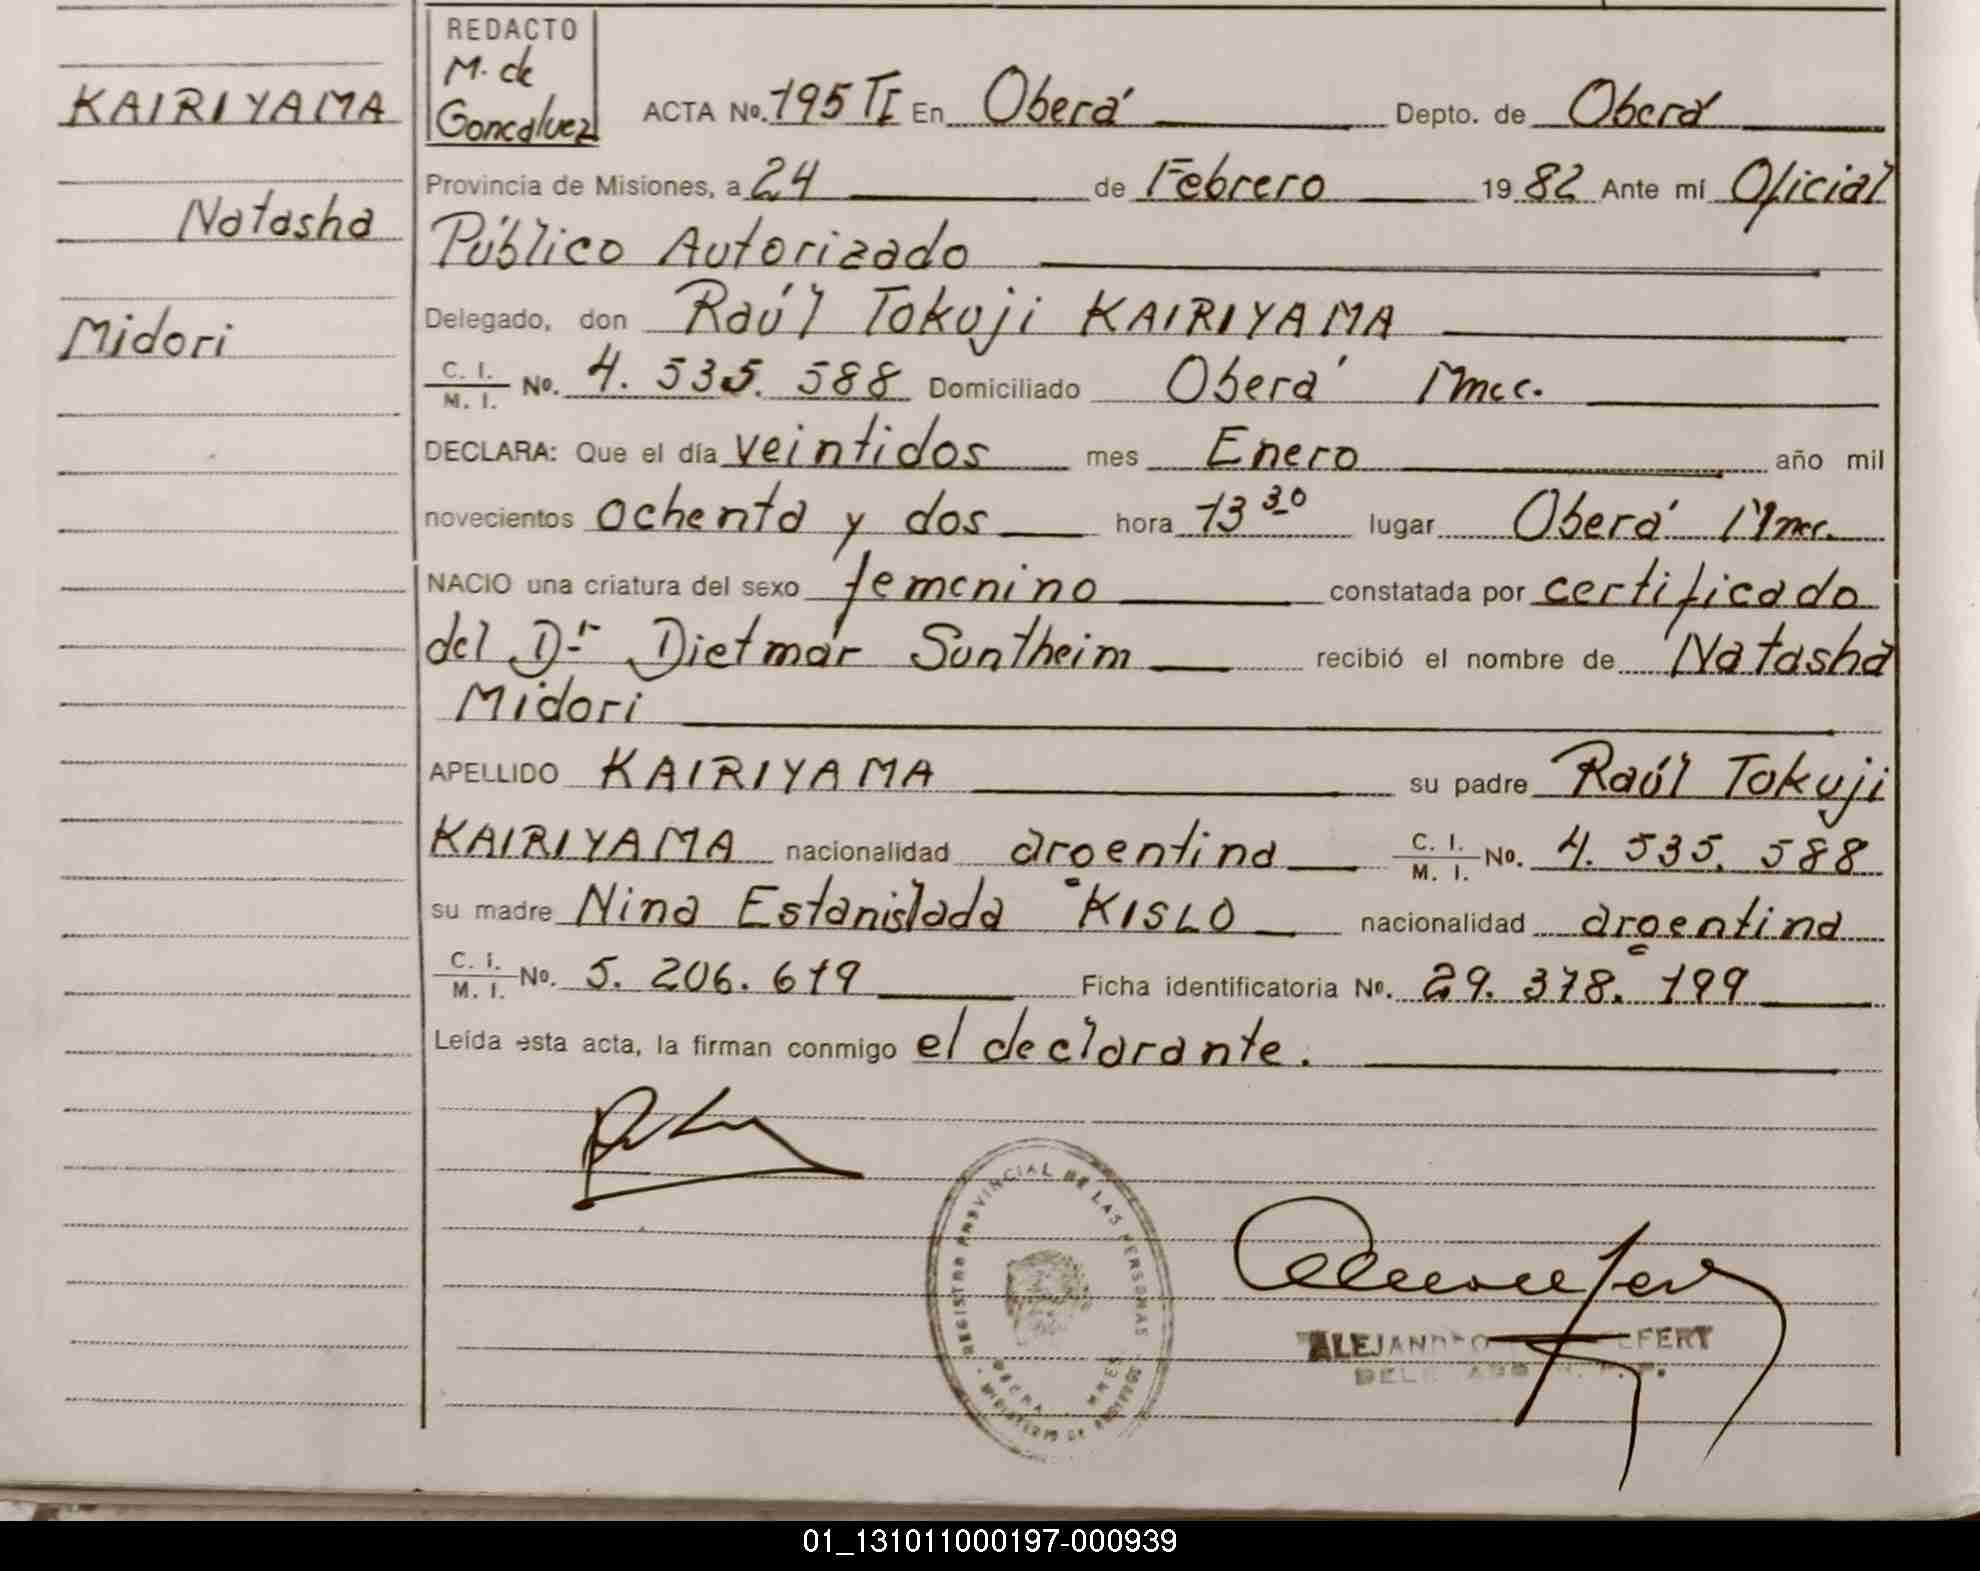 REDACTO
M. de
Goncalvez
KAIRIYAMA
Natasha
Midori
ACTA No. 195 TI En Oberá Depto. de Oberá
Provincia de Misiones, a 24 de Febrero 1982 Ante mí Oficial
Público Autorizado
Delegado, don Raúl Tokuji KAIRIYAMA
C. I. / M. I. No. 4. 535. 588 Domiciliado Oberá Mnes.
DECLARA: Que el día veintidos mes Enero año mil
novecientos ochenta y dos hora 13 30 lugar Oberá Mnes.
NACIO una criatura del sexo femenino constatada por certificado
del Dr Dietmar Suntheim recibió el nombre de Natasha
Midori
APELLIDO KAIRIYAMA su padre Raúl Tokuji
KAIRIYAMA nacionalidad argentina C. I. / M. I. No. 4. 535. 588
su madre Nina Estanislada KISLO nacionalidad argentina
C. I. / M. I. No. 5. 206. 619 Ficha identificatoria No. 29. 378. 199
Leída esta acta, la firman conmigo el declarante.
REGISTRO PROVINCIAL DE LAS PERSONAS
OBERA MNES
MINISTERIO DE GOBIERNO
ALEJANDRO
01_131011000197-000939